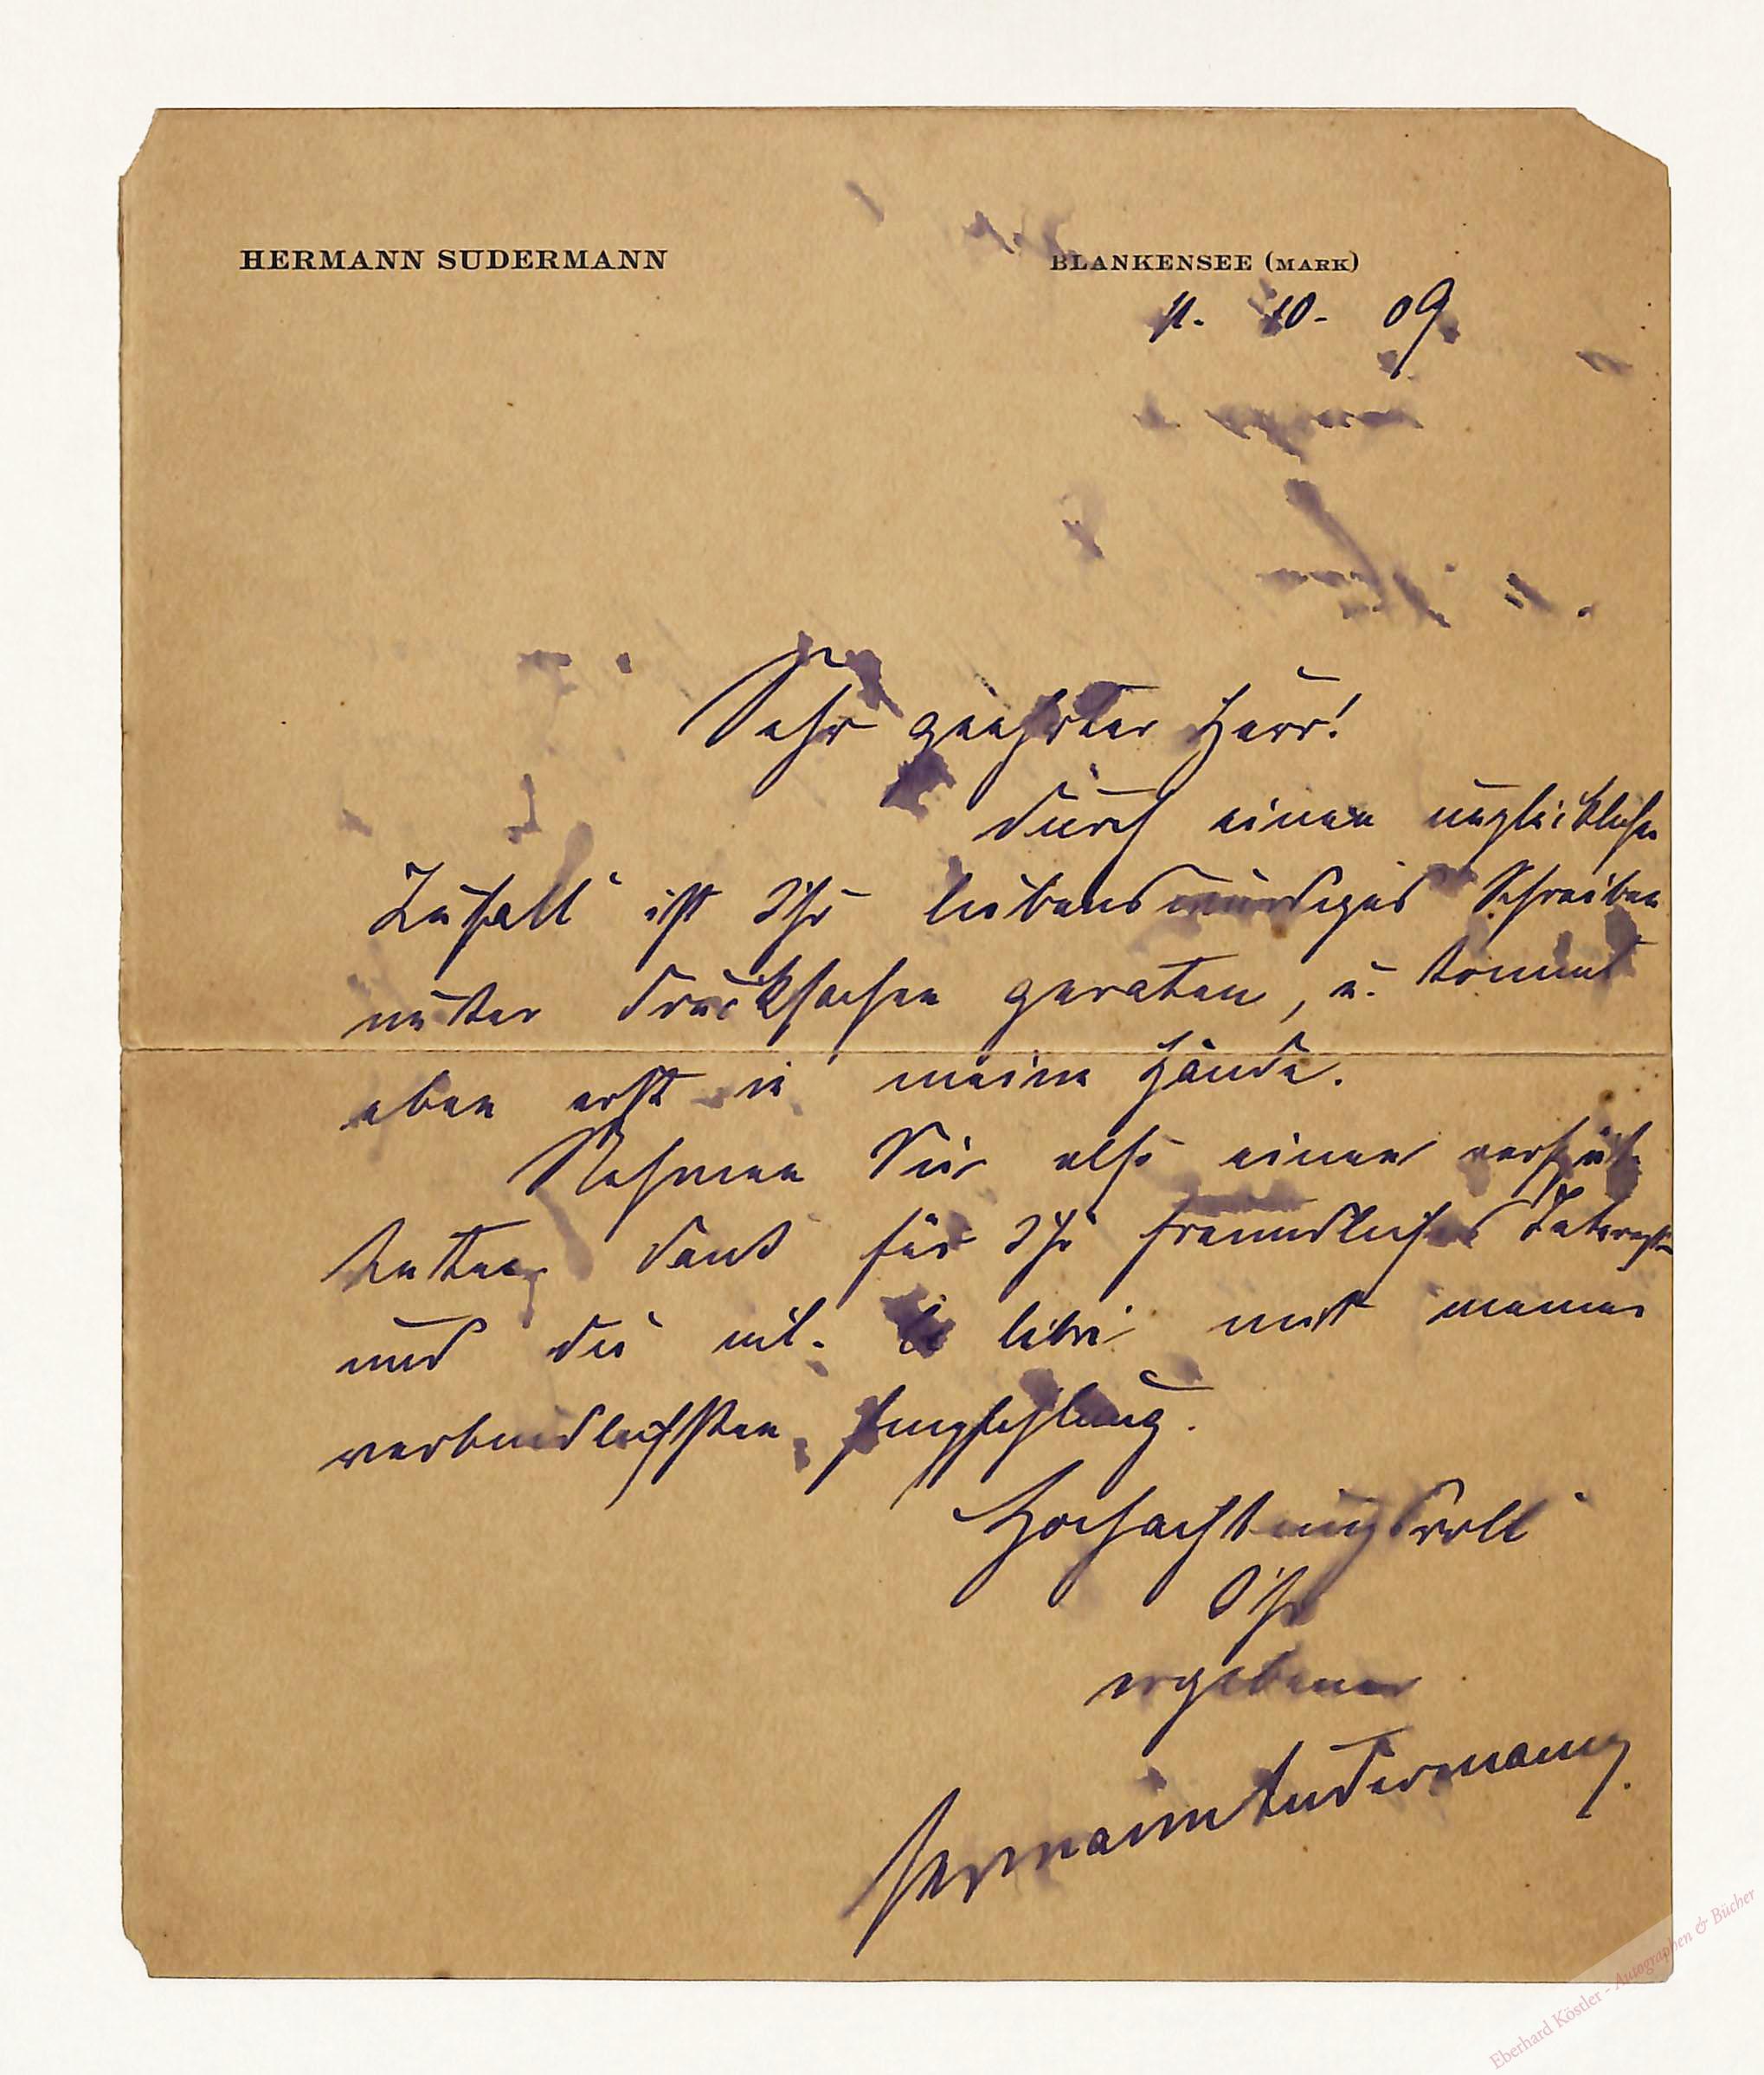 HERMANN SUDERMANN
BLANKENSEE (MARK)
11. 10. 09
Sehr geehrter Herr!
Durch einen unglücklichen
Zufall ist Ihr liebenswürdiges Schreiben
unter Drucksachen geraten, u. kommt
eben erst in meine Hände.
Nehmen Sie also einen verspä-
teten Dank für Ihr freundliches Interesse
und die libri mit meiner
verbindlichsten Empfehlung.
Hochachtungsvoll
Ihr
ergebener
Hermann Sudermann.
Eberhard Köstler - Autographen & Bücher